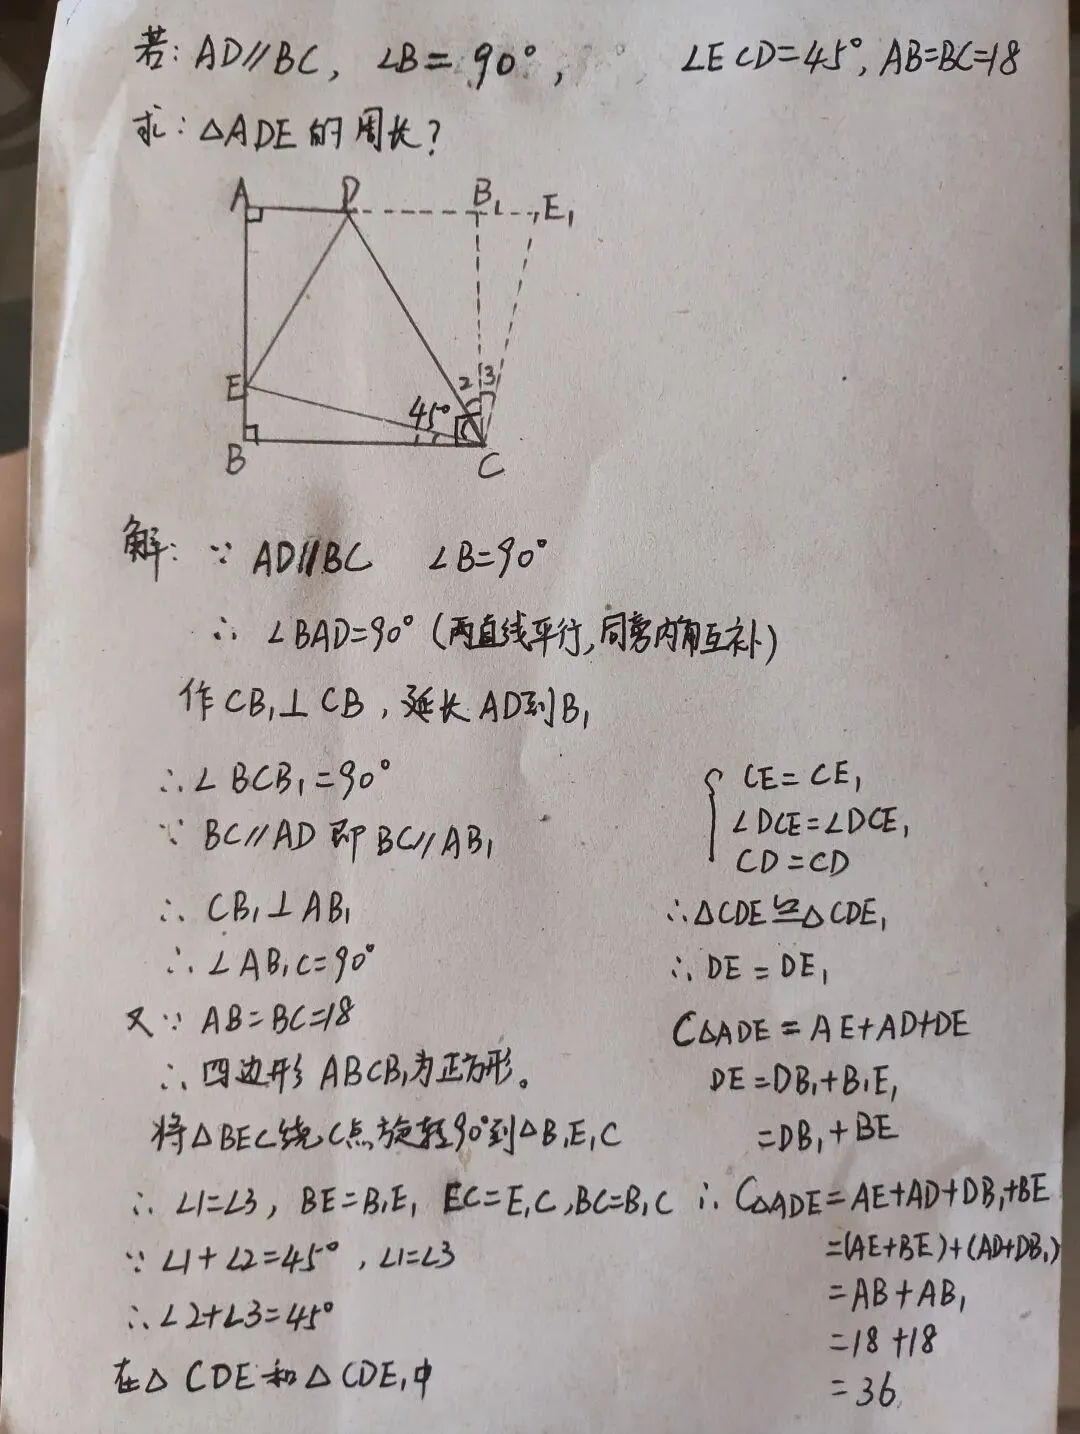 若: AD∥BC, ∠B=90°, ∠ECD=45°, AB=BC=18
求: △ADE的周长?
A D B₁ E₁
E 45° 2 3
B C
解: ∵ AD∥BC ∠B=90°
∴ ∠BAD=90° (两直线平行,同旁内角互补)
作CB₁⊥CB, 延长AD到B₁
∴∠BCB₁=90°
∵ BC∥AD 即BC∥AB₁
∴ CB₁⊥AB₁
∴∠AB₁C=90°
又∵ AB=BC=18
∴四边形ABCB₁为正方形。
将△BEC绕C点旋转90°到△B₁E₁C
∴ ∠1=∠3, BE=B₁E₁ EC=E₁C,BC=B₁C
∵ ∠1+∠2=45°, ∠1=∠3
∴∠2+∠3=45°
在△CDE和△CDE₁中
{ CE=CE₁
∠DCE=∠DCE₁
CD=CD
∴△CDE≌△CDE₁
∴ DE=DE₁
C△ADE=AE+AD+DE
DE=DB₁+B₁E₁
=DB₁+BE
∴ C△ADE=AE+AD+DB₁+BE
=(AE+BE)+(AD+DB₁)
=AB+AB₁
=18+18
=36